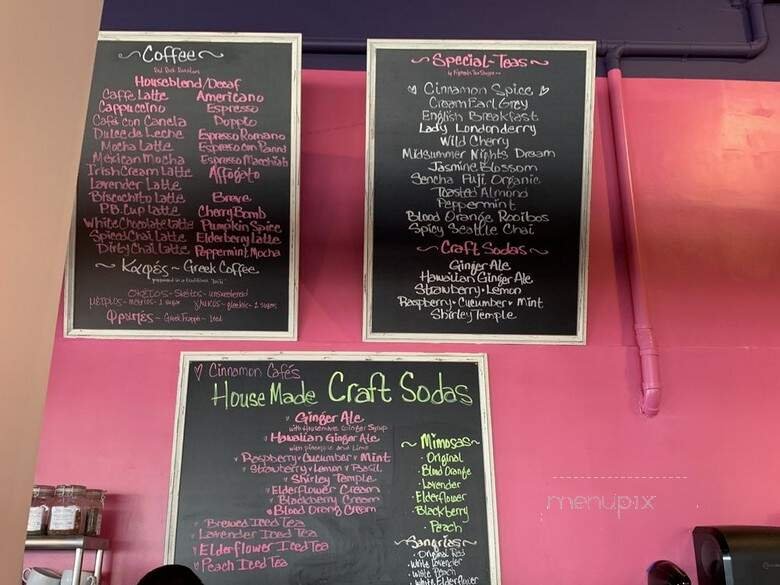 Coffee
Houseblend/Decaf
Caffe Latte
Cappuccino
Café con Canela
Dulce de Leche
Mocha Latte
Mexican Mocha
Irish Cream Latte
Lavender Latte
Biscochito Latte
P.B. Cup Latte
White Chocolate Latte
Spiced Chai Latte
Dirty Chai Latte
Americano
Espresso
Doppio
Espresso Romano
Espresso con Panna
Espresso Macchiato
Affogato
Breve
Cherry Bomb
Pumpkin Spice
Elderberry Latte
Peppermint Mocha
~ Καφές ~ Greek Coffee
σκέτος - Sketos - unsweetened
μέτριος - metrios - 1 sugar γλυκός - glookos - 2 sugars
Φραπές ~ Greek Frappé ~ Iced
~Special-Teas~
Cinnamon Spice
Cream Earl Grey
English Breakfast
Lady Londonderry
Wild Cherry
Midsummer Nights Dream
Jasmine Blossom
Sencha Fuji, Organic
Toasted Almond
Peppermint
Blood Orange Rooibos
Spicy Seattle Chai
~ Craft Sodas ~
Ginger Ale
Hawaiian Ginger Ale
Strawberry • Lemon
Raspberry • Cucumber • Mint
Shirley Temple
♡ Cinnamon Cafés
House Made Craft Sodas
Ginger Ale
with Housemade Ginger Syrup
Hawaiian Ginger Ale
with pineapple and lime
Raspberry • Cucumber • Mint
Strawberry • Lemon • Basil
Shirley Temple
Elderflower Cream
Blackberry Cream
Blood Orange Cream
Brewed Iced Tea
Lavender Iced Tea
Elderflower Iced Tea
Peach Iced Tea
~ Mimosas ~
• Original
• Blood Orange
• Lavender
• Elderflower
• Blackberry
• Peach
~ Sangrias ~
• Original Red
• White Lavender
• White Peach
• White Elderflower
menupix